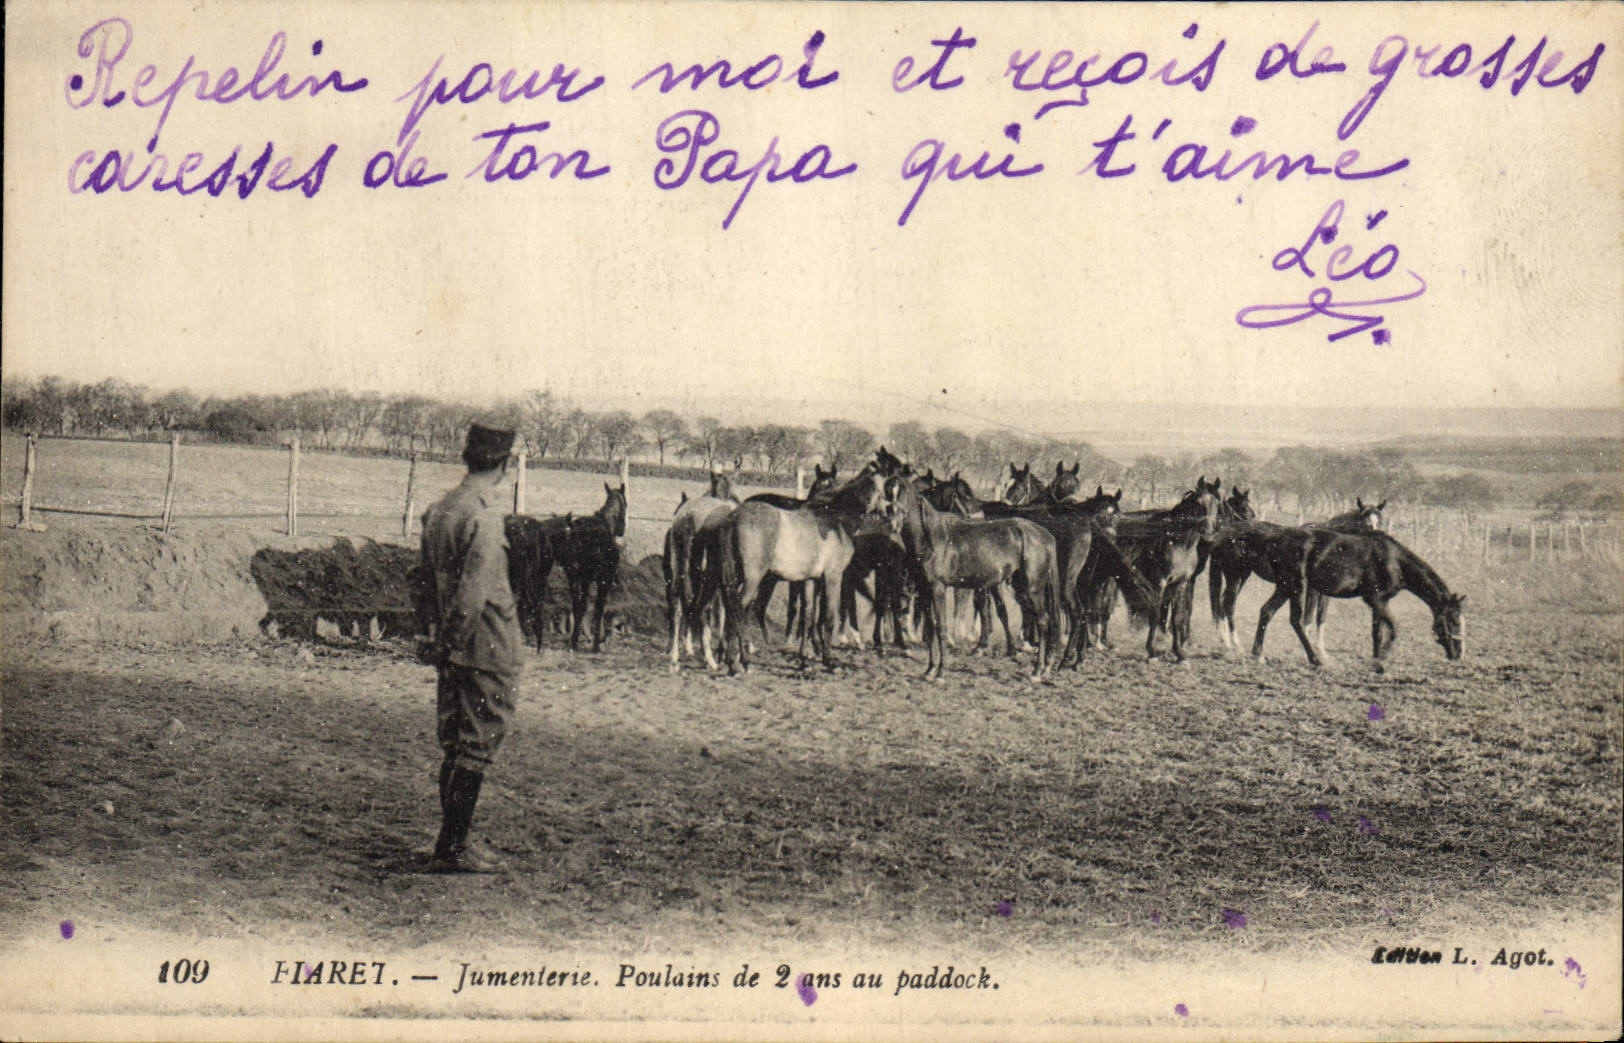 Repelin pour moi et reçois de grosses
caresses de ton Papa qui t'aime
Léo
109 TIARET. — Jumenterie. Poulains de 2 ans au paddock.
Edition L. Agot.